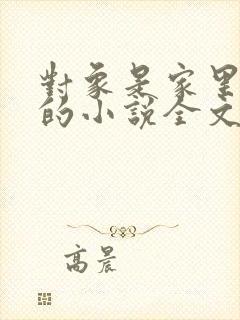 對象是家里
的小說全文
高晨